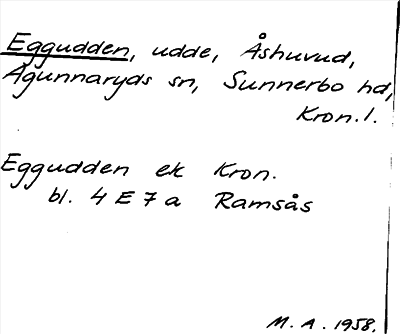 Eggudden, udde, Åshuvud,
Agunnaryds sn, Sunnerbo hd,
Kron.l.
Eggudden ek Kron.
bl. 4 E 7 a Ramsås
M.A. 1958.